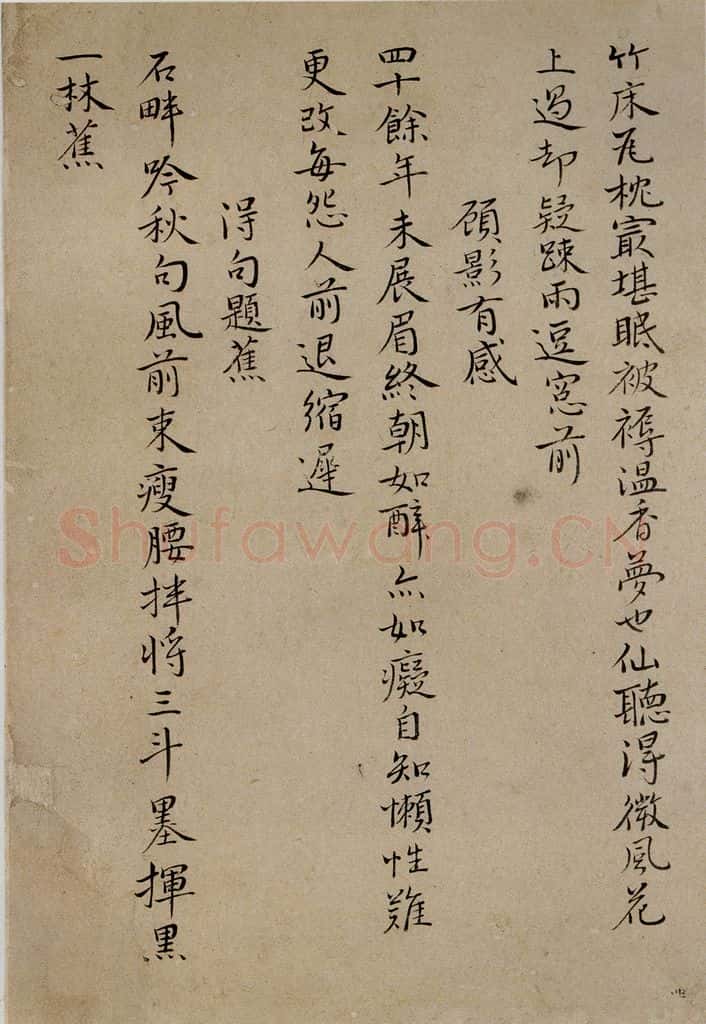 竹床瓦枕㝡堪眠被褥温香夢也仙聽淂微風花
上過却疑踈雨逗窓前
顾影有感
四十餘年未展眉終朝如醉亦如癡自知懶性難
更改每怨人前退縮遲
淂句題蕉
石畔吟秋句風前束瘦腰拌將三斗墨揮黑
一林蕉
Shufawang.CN